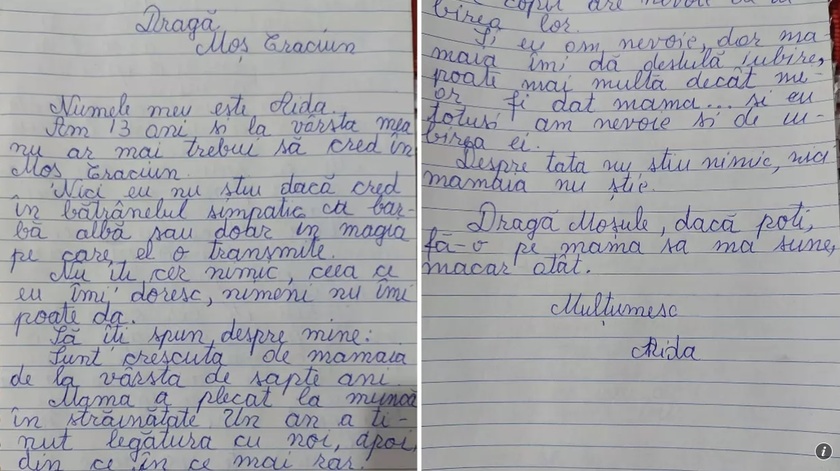 Dragă
Moș Craciun
Numele meu este Aida.
Am 13 ani si la vârsta mea
nu ar mai trebui să cred în
Moș Craciun.
Nici eu nu stiu dacă cred
în bătrânelul simpatic cu bar-
bă albă sau doar in magia
pe care el o transmite.
Nu iti cer nimic, ceea ce
eu îmi doresc, nimeni nu îmi
poate da.
Să îti spun despre mine:
Sunt crescuta de mamaia
de la vârsta de sapte ani.
Mama a plecat la muncă
în străinătate. Un an a ti-
nut legătura cu noi, apoi,
din ce în ce mai rar.
copil are nevoie
birea lor.
Si eu am nevoie, dar ma-
maia îmi dă destulă iubire,
poate mai multă decât mi-
ar fi dat mama... si eu
totusi am nevoie si de iu-
birea ei.
Despre tata nu stiu nimic, nici
mamaia nu știe.
Dragă Mosule, dacă poti,
fă-o pe mama sa ma sune,
macar atât.
Mulțumesc
Aida